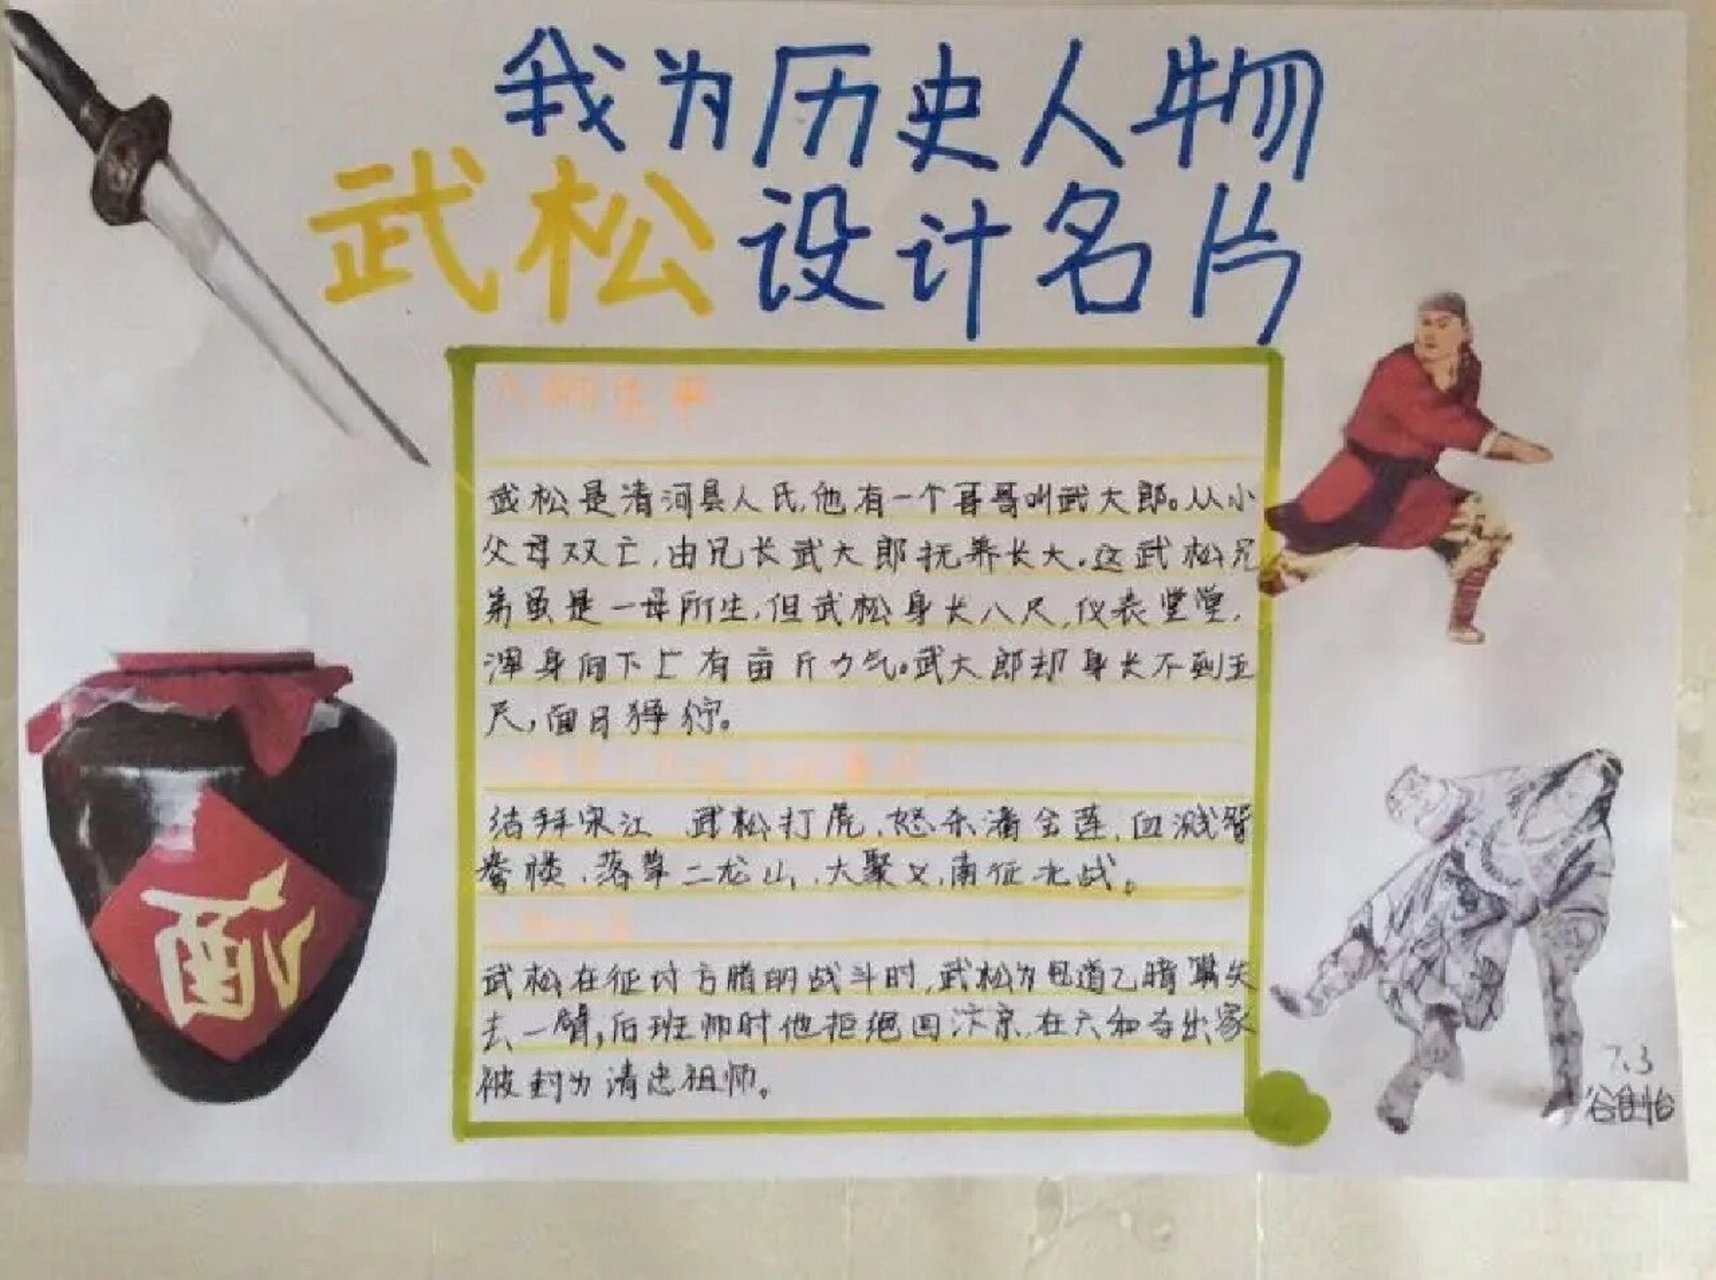 我为历史人物
武松设计名片
人物生平
武松是清河县人氏，他有一个哥哥叫武大郎。从小
父母双亡，由兄长武大郎抚养长大。这武松兄
弟虽是一母所生，但武松身长八尺，仪表堂堂，
浑身向下上有亩斤力气。武大郎却身长不到五
尺，面目狰狞。
结拜宋江、武松打虎、怒杀潘金莲、血溅鸳
鸯楼、落草二龙山、大聚义、南征北战。
武松在征讨方腊的战斗时，武松为包道乙暗算失
去一臂，后班师时他拒绝回汴京，在六和寺出家
被封为清忠祖师。
7.3
酒